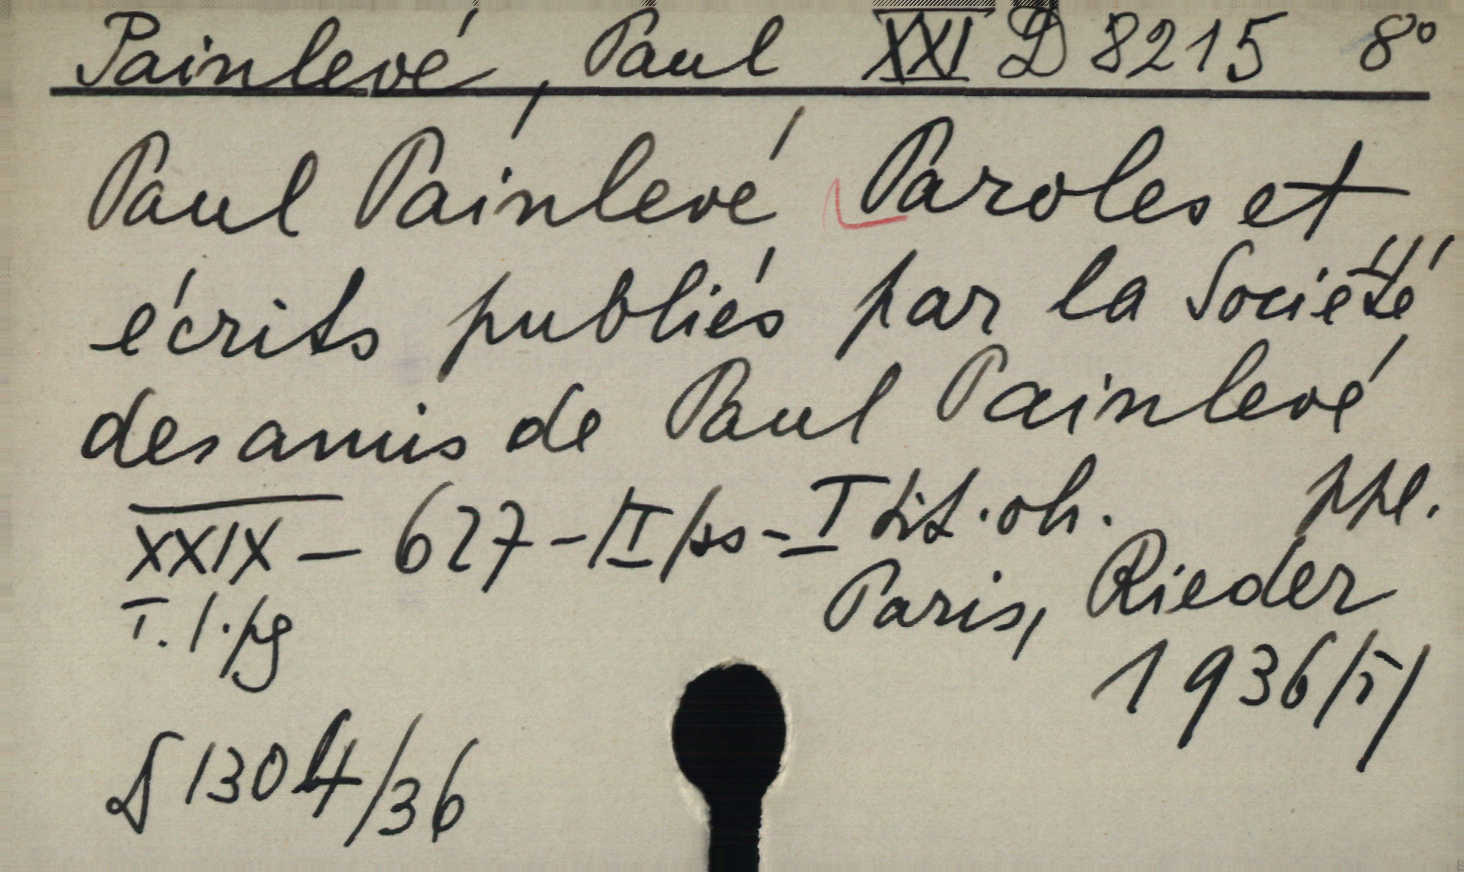 Painlevé, Paul XXI D 8215 8°
Paul Painlevé Paroles et
écrits publiés par la Société
des amis de Paul Painlevé
XXIX - 627 - II ppl.
Paris, Rieder
T. 1. pg
1936
1304/36